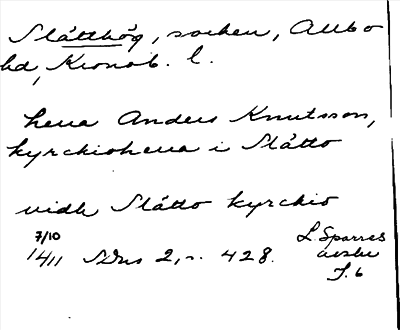 Slätthög, socken, Allbo
hd, Kronob. l.
herra Anders Knutsson,
kyrckioherra i Slåtto
vidh Slåtto kyrckio
7/10
1411 SDns 2, n. 428.
L Sparres
avskr
S. 6